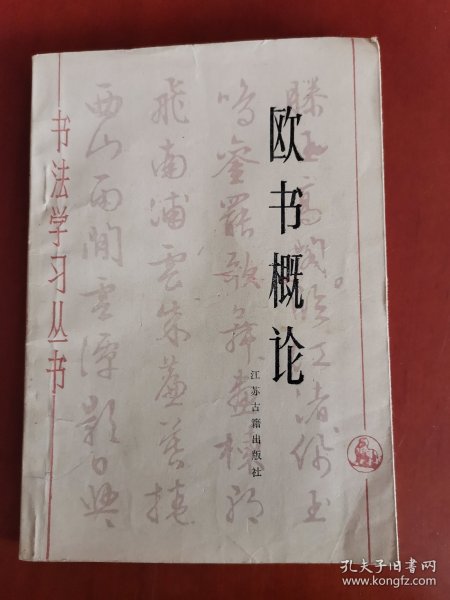 欧书概论
江苏古籍出版社
书法学习丛书
滕王高阁临江渚佩玉
鸣銮罢歌舞画栋朝
飞南浦云朱帘暮捲
西山雨闲云潭影日悠
孔夫子旧书网
www.kongfz.com